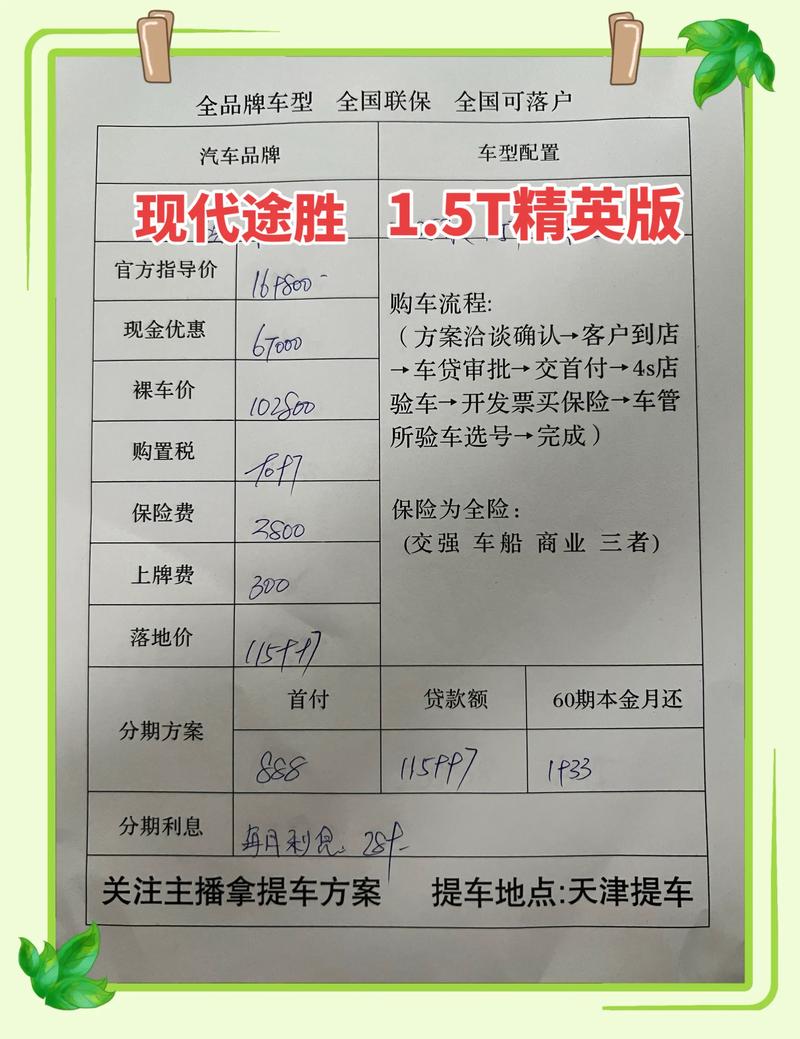 全品牌车型 全国联保 全国可落户
汽车品牌 车型配置
现代途胜 1.5T精英版
官方指导价 169800-
现金优惠 67000
裸车价 102800
购置税 9097
保险费 3800
上牌费 300
落地价 115997
购车流程:
(方案洽谈确认→客户到店
→车贷审批→交首付→4s店
验车→开发票买保险→车管
所验车选号→完成)
保险为全险:
(交强 车船 商业 三者)
分期方案
首付 贷款额 60期本金月还
888 115997 1933
分期利息 每月利息: 289-
关注主播拿提车方案 提车地点:天津提车